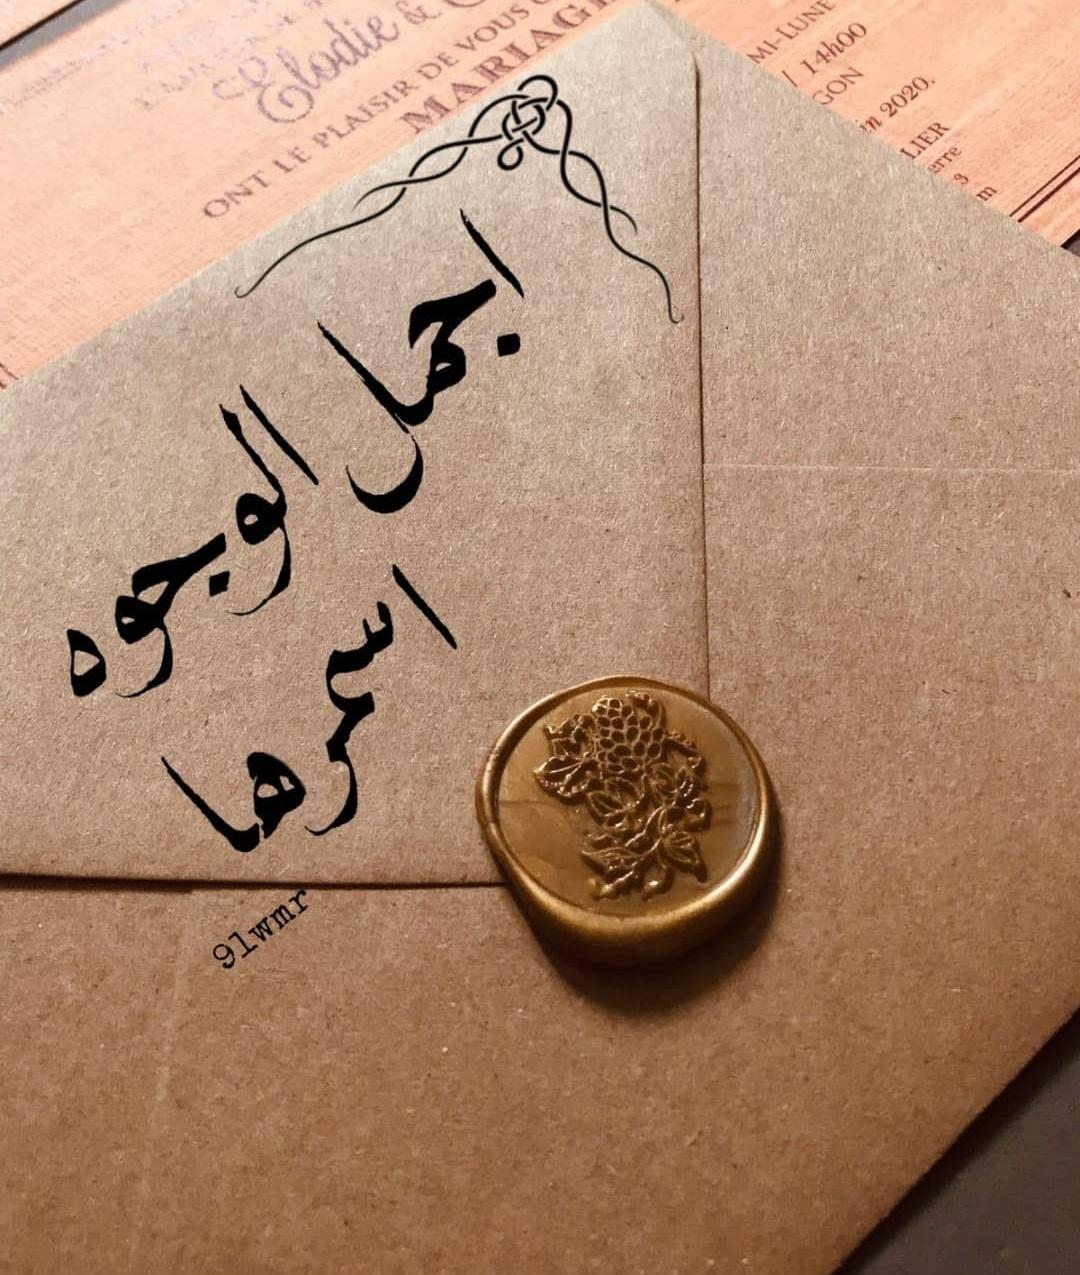 Elodie &
ONT LE PLAISIR DE VOUS
MARIAGE
MI-LUNE
/ 14h00
GON
in 2020.
LIER
erre
3
m
اجمل
الوجوه
اسمرها
91wmr